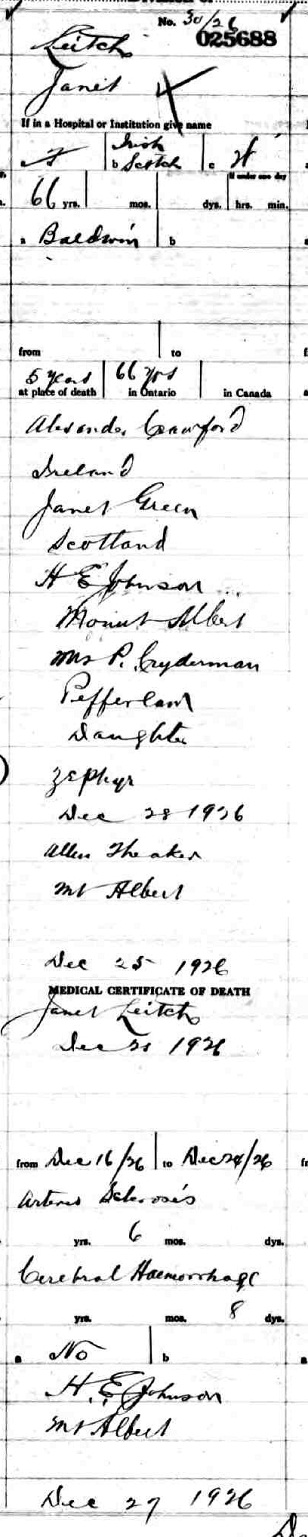 No. 30/26
025688
Leitch
Janet
If in a Hospital or Institution give name
F b Irish Scotch c W
If under one day
66 yrs. mos. dys. hrs. min.
a Baldwin b
from to
5 years 66 yrs
at place of death in Ontario in Canada
Alexander Crawford
Ireland
Janet Green
Scotland
H E Johnson
Mount Albert
Mrs P. Cryderman
Pefferlaw
Daughter
Zephyr
Dec 28 1926
Allen Theaker
Mt Albert
Dec 25 1926
MEDICAL CERTIFICATE OF DEATH
Janet Leitch
Dec 25 1926
from Dec 16/26 to Dec 24/26
Arterio Sclerosis
yrs. 6 mos. dys.
Cerebral Haemorrhage
yrs. mos. 8 dys.
a No b
H. E. Johnson
Mt Albert
Dec 27 1926